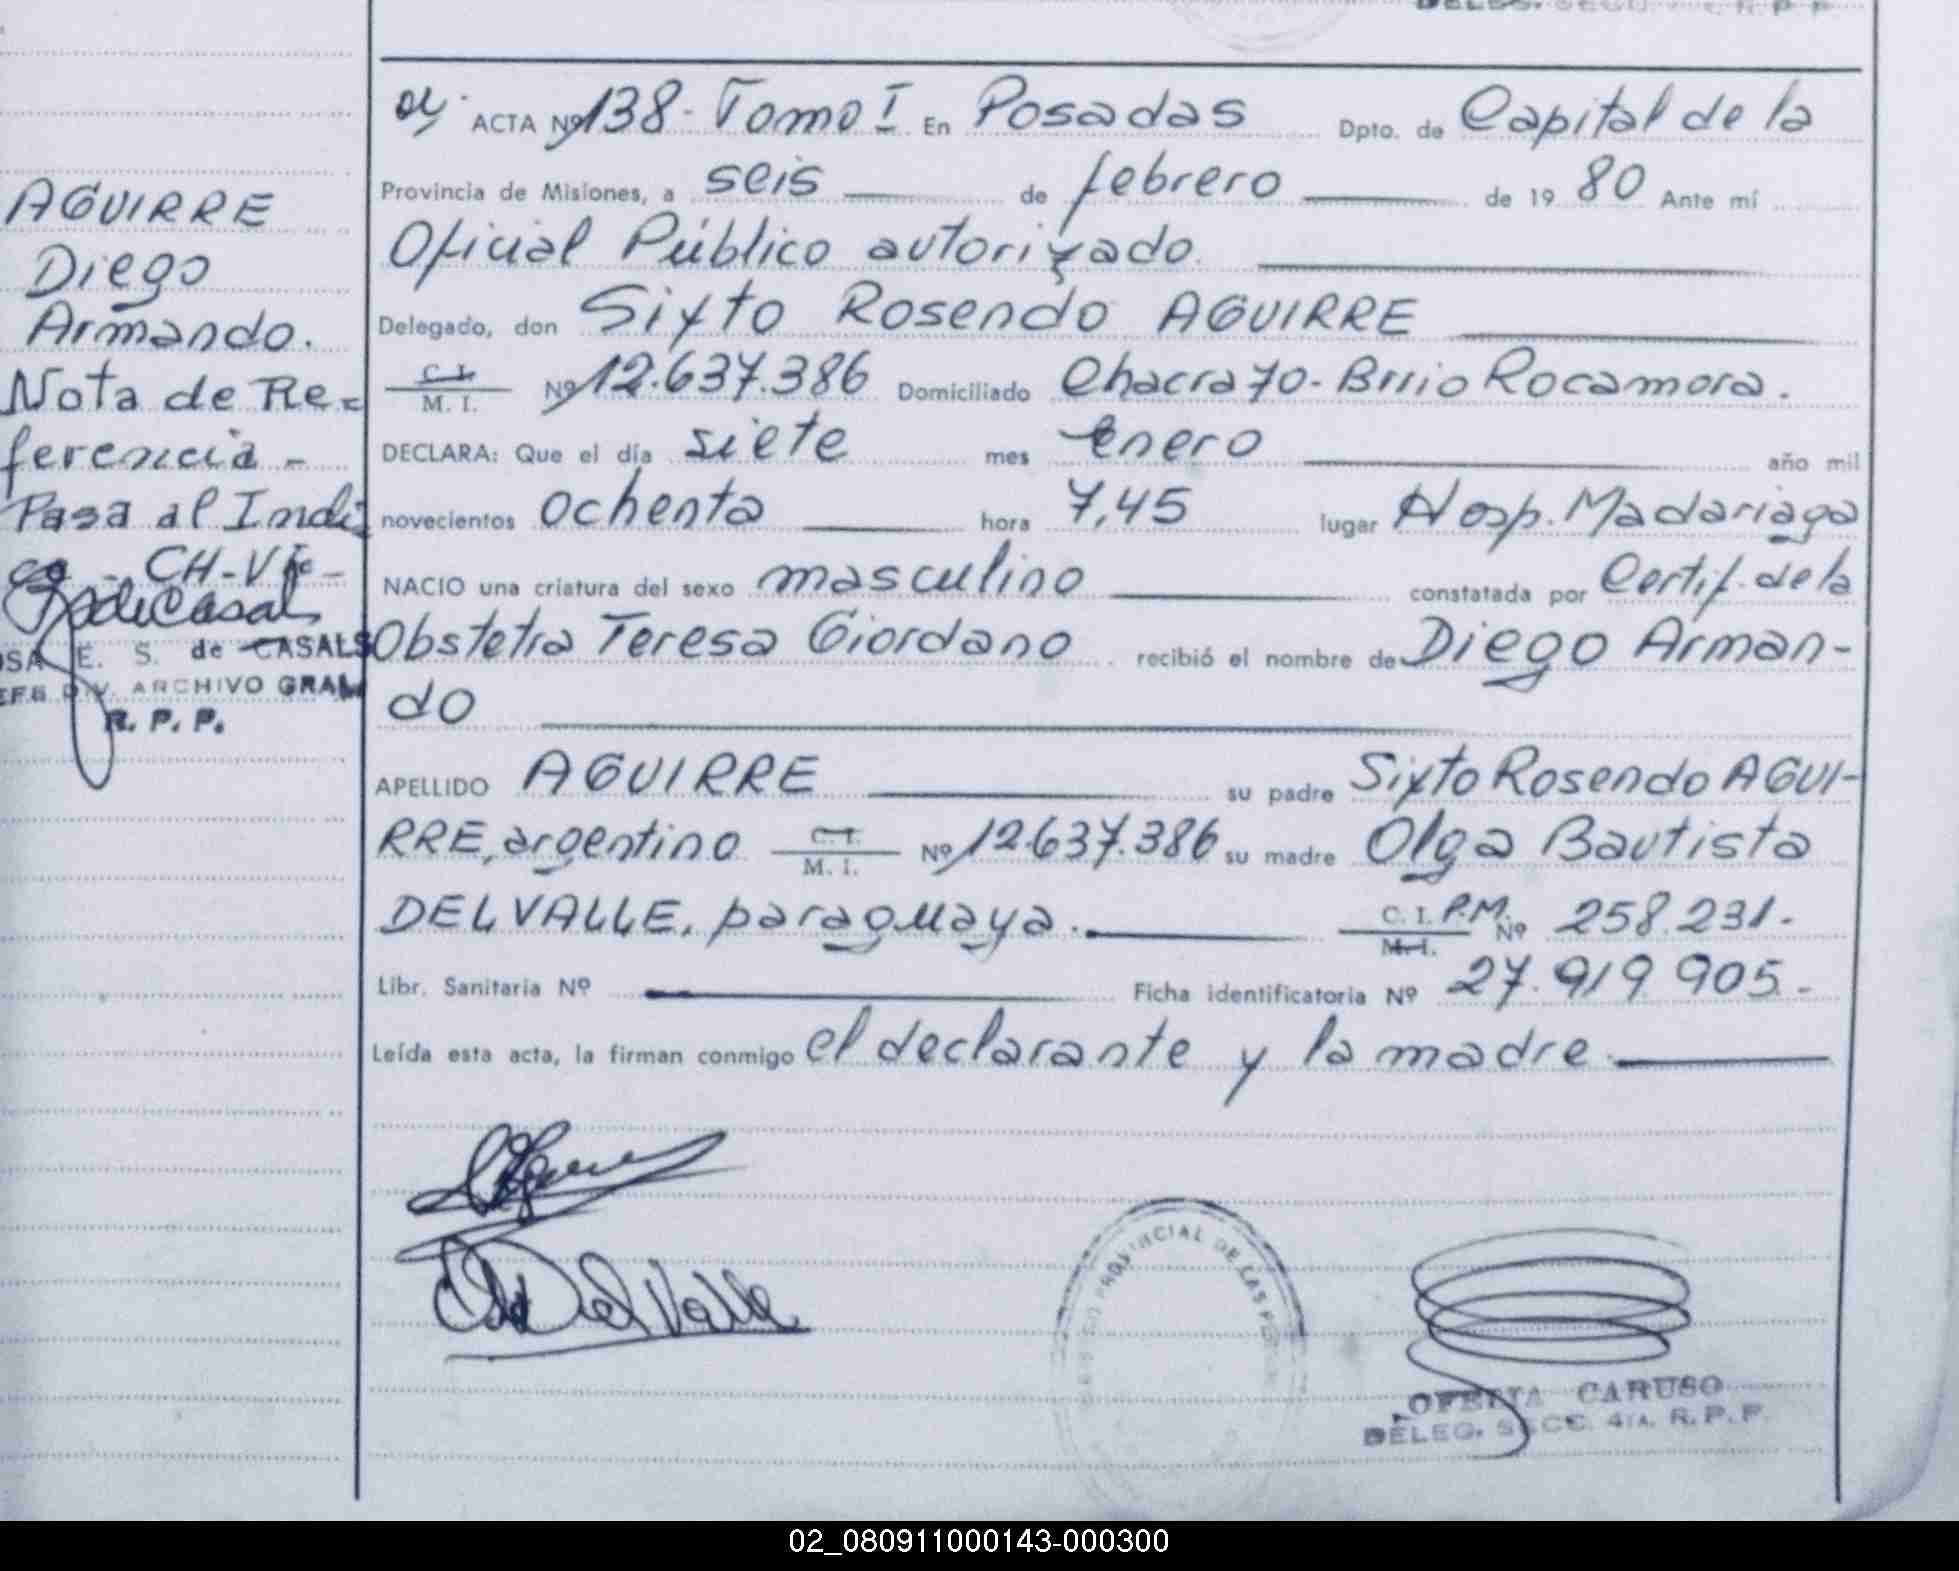 DELEG. SECC. R. P. P.
ACTA Nº 138 - Tomo I En Posadas Dpto. de Capital de la
Provincia de Misiones, a seis de febrero de 19 80 Ante mí
Oficial Público autorizado.
Delegado, don Sixto Rosendo AGUIRRE
C. I. M. I. Nº 12.637.386 Domiciliado Chacra 70 - Brrio Rocamora.
DECLARA: Que el día siete mes enero año mil
novecientos ochenta hora 7,45 lugar Hosp. Madariaga
NACIO una criatura del sexo masculino constatada por Certif. de la
Obstetra Teresa Giordano recibió el nombre de Diego Arman-
do
APELLIDO AGUIRRE su padre Sixto Rosendo AGUI-
RRE, argentino C. I. M. I. Nº 12.637.386 su madre Olga Bautista
DEL VALLE, paraguaya. C. I. P.M. M. I. Nº 258.231.-
Libr. Sanitaria Nº Ficha identificatoria Nº 27.919.905.-
Leída esta acta, la firman conmigo el declarante y la madre.
AGUIRRE
Diego
Armando.
Nota de Re=
ferencia -
Pasa al Indi
ce - CH-V
E. S. de CASALS
DIV. ARCHIVO GRAL
R. P. P.
Del Valle
PROVINCIAL DE LAS
OFELIA CARUSO
DELEG. SECC. 4TA. R. P. P.
02_080911000143-000300